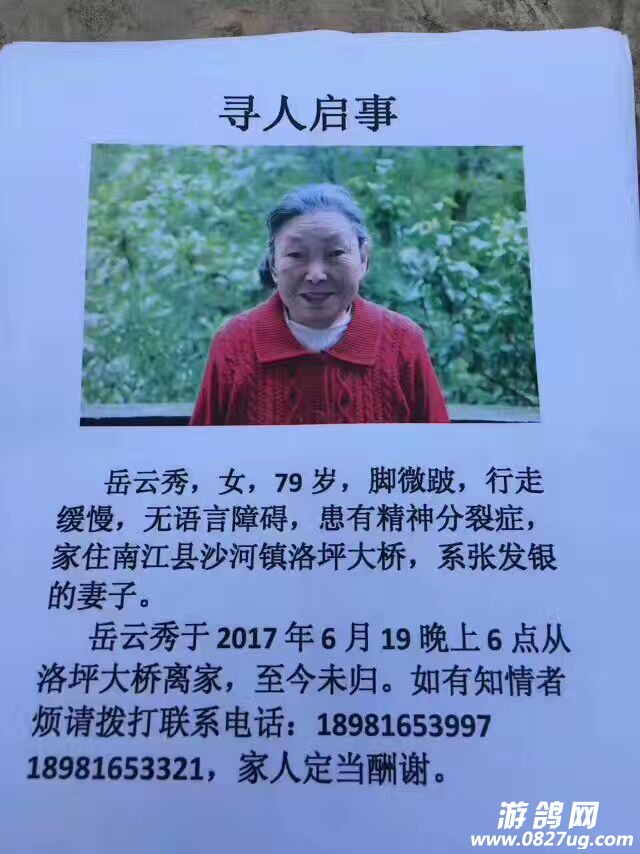 寻人启事
岳云秀，女，79岁，脚微跛，行走
缓慢，无语言障碍，患有精神分裂症，
家住南江县沙河镇洛坪大桥，系张发银
的妻子。
岳云秀于2017年6月19晚上6点从
洛坪大桥离家，至今未归。如有知情者
烦请拨打联系电话：18981653997
18981653321，家人定当酬谢。
游鸽网
www.0827ug.com